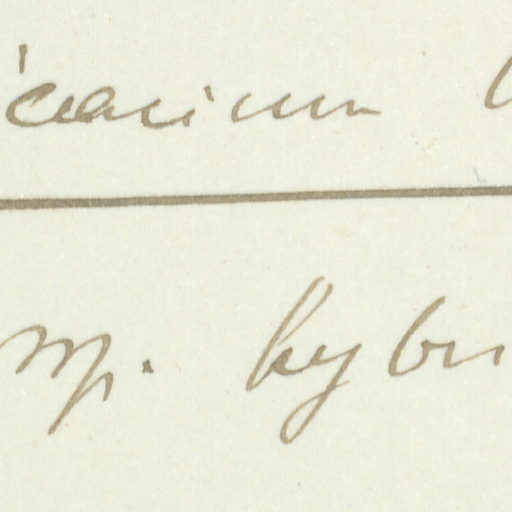 icarium
sp. hybri